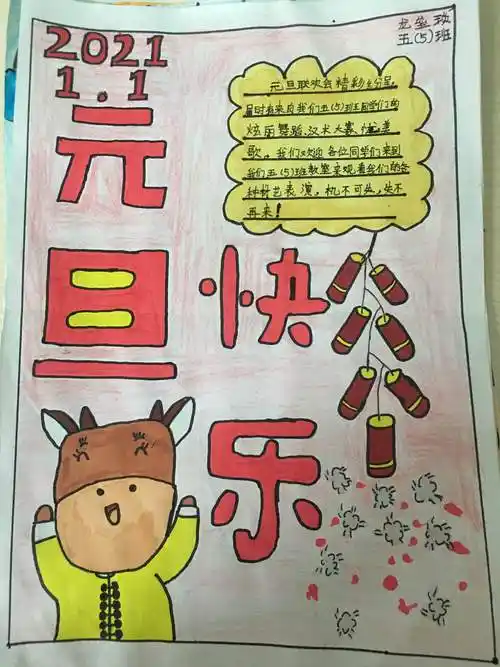 2021
1.1
元旦
快乐
五(5)班
元旦联欢会精彩纷呈,
届时有来自我们五(5)班同学们的
炫丽舞蹈、汉术大赛、优美
歌，我们欢迎各位同学们来到
我们五(5)班教室来观看我们的各
种才艺表演，机不可失，失不
再来！